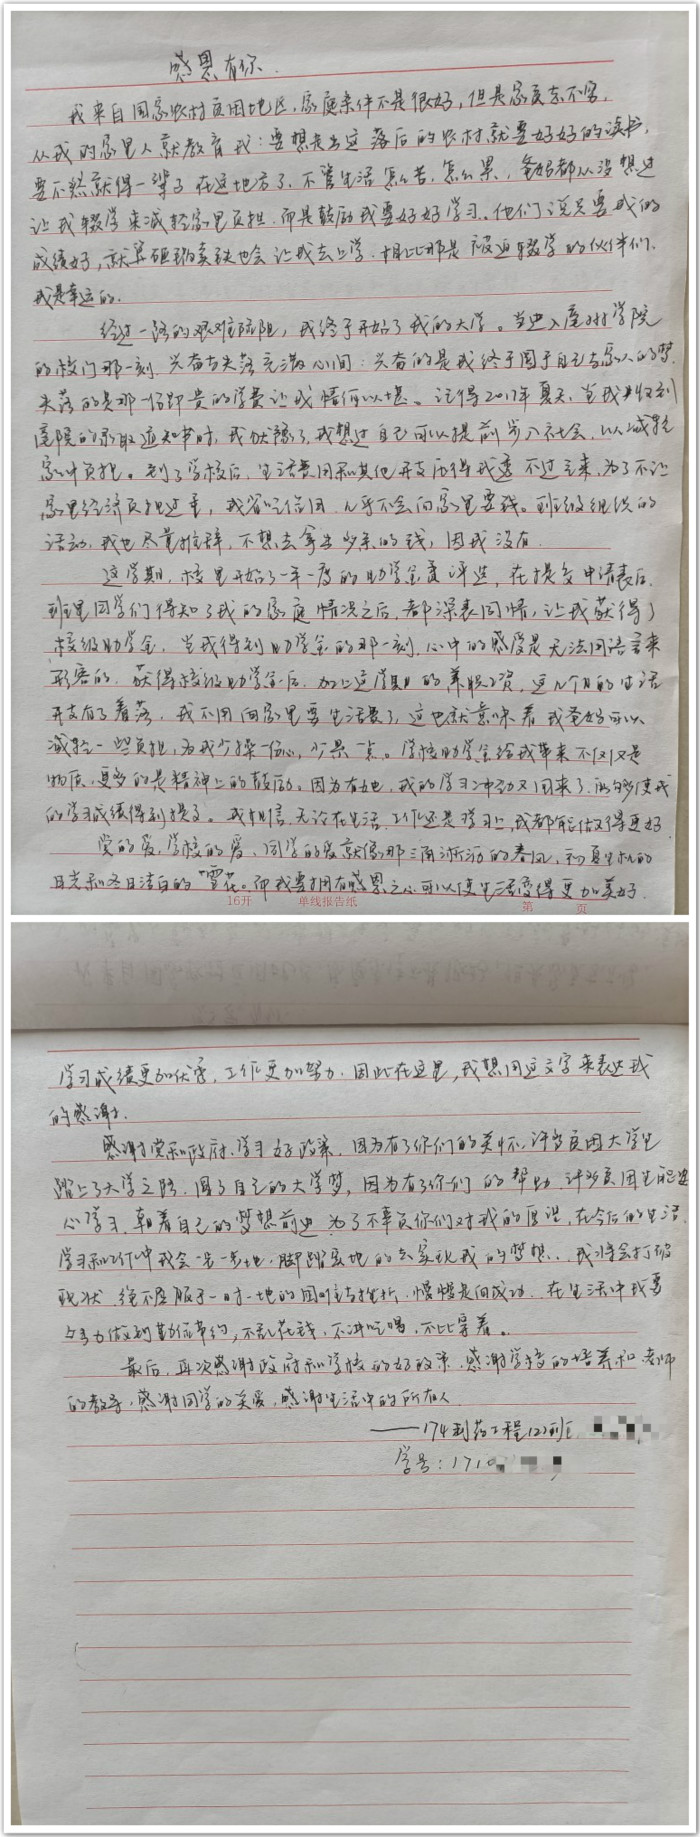 感恩有你.
我来自国家农村贫困地区,家庭条件不是很好,但是家贫志不穷,
从我的家里人就教育我:要想走出这落后的农村就要好好的读书,
要不然就得一辈子在这地方了.不管生活怎么苦,怎么累,爸妈都从没想过
让我辍学来减轻家里负担.而是鼓励我要好好学习。他们说只要我的
成绩好,就算砸锅卖铁也会让我去上学.相比那是被迫辍学的伙伴们.
我是幸运的.
经过一路的艰难险阻,我终于开始了我的大学。当进入 学院
的校门那一刻.兴奋与失落充满心间:兴奋的是我终于圆了自己与家人的梦.
失落的是那一份昂贵的学费让我情何以堪。记得2017年夏天,当我收到
院的录取通知书时,我犹豫了,我想过自己可以提前步入社会,以减轻
家中负担。到了学校后,生活费用和其他开支压得我透不过气来,为了不让
家里经济负担过重,我省吃俭用.几乎不会向家里要钱。班级组织的
活动,我也尽量推辞,不想去拿出多余的钱,因我没有.
这学期,校里开始了一年一度的助学金 评选,在提交申请表后.
班里同学们得知了我的家庭情况之后,都深表同情,让我获得了
校级助学金.当我得到助学金的那一刻,心中的感受是无法用语言来
形容的.获得校级助学金后.加上这学期的兼职工资,这几个月的生活
开支有了着落,我不用向家里要生活费了,这也就意味着我爸妈可以
减轻一些负担,为我少操一份心,少累一点。学校助学金给我带来不仅仅是
物质,更多的是精神上的鼓励。因为有她,我的学习冲动又回来了.能够使我
的学习成绩得到提高。我相信.无论在生活.工作还是学习上,我都能做得更好.
党的爱,学校的爱、同学的爱就像那三月 的春风,初夏 的
日光和冬日洁白的“雪花。而我要拥有感恩之心可以使生活变得更加美好.
16开 单线报告纸 第 页
学习成绩更加优秀,工作更加努力.因此在这里,我想用这文字来表达我
的感谢.
感谢党和政府.学习好政策.因为有了你们的关怀.许多贫困大学生
踏上了大学之路.圆了自己的大学梦,因为有了你们的帮助.许多贫困生能安
心学习.朝着自己的梦想前进.为了不辜负你们对我的厚望,在今后的生活.
学习和工作中我会一步一步地.脚踏实地的去实现我的梦想.我将会打破
现状.绝不屈服于一时一地的困难与挫折.慢慢走向成功.在生活中我要
努力做到勤俭节约,不乱花钱,不讲吃喝,不比穿着。
最后,再次感谢政府和学校的好政策.感谢学校的培养和老师
的教导,感谢同学的关爱,感谢生活中的所有人.
——174制药工程(2)班
学号:1710